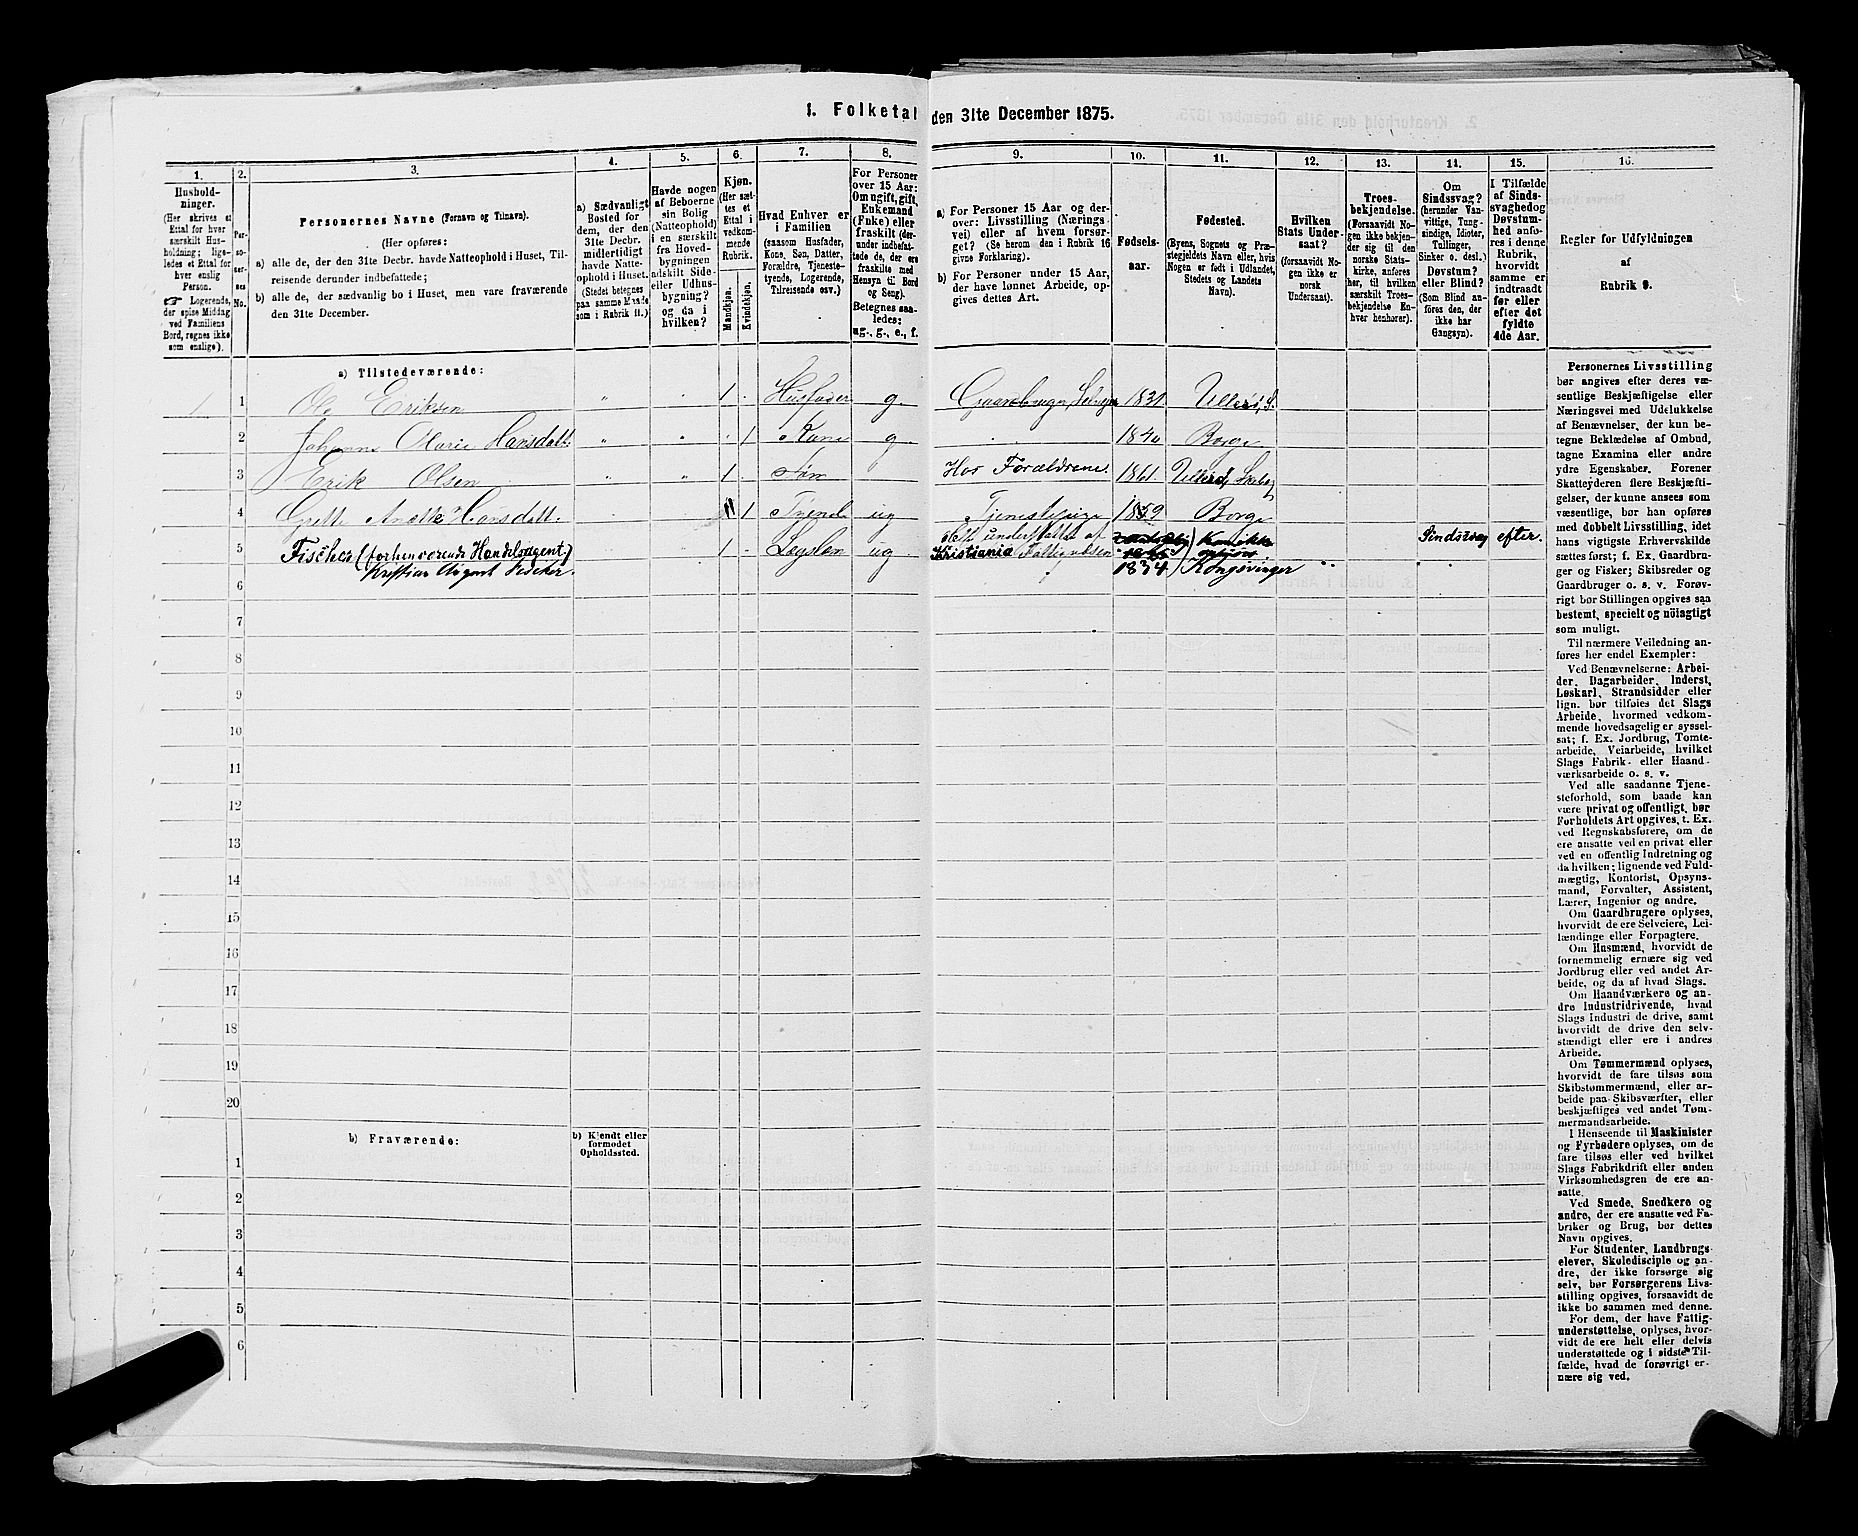 1. Folketal den 31te December 1875.
1.
Hushold-
ninger.
(Her skrives et
Ettal for hver
særskilt Hus-
holdning; lige-
ledes et Ettal for
hver enslig
Person.
☞ Logerende,
der spise Middag
ved Familiens
Bord, regnes ikke
som enslige).
2.
Per-
so-
ner-
nes
No.
3.
Personernes Navne (Fornavn og Tilnavn).
(Her opføres:
a) alle de, der den 31te Decbr. havde Natteophold i Huset, Til-
reisende derunder indbefattede;
b) alle de, der sædvanlig bo i Huset, men vare fraværende
den 31te December.
4.
a) Sædvanligt
Bosted for
dem, der den
31te Decbr.
midlertidigt
havde Natte-
ophold i Huset.
(Stedet betegnes
paa samme Maade
som i Rubrik 11.)
5.
Havde nogen
af Beboerne
sin Bolig
(Natteophold)
i en særskilt
fra Hoved-
bygningen
adskilt Side-
eller Udhus-
bygning?
og da i
hvilken?
6.
Kjøn.
(Her sæt-
tes et
Ettal i
vedkom-
mende
Rubrik.
Mandkjøn.
Kvindekjøn.
7.
Hvad Enhver er
i Familien
(saasom Husfader,
Kone, Søn, Datter,
Forældre, Tjeneste-
tyende, Logerende,
Tilreisende osv.)
8.
For Personer
over 15 Aar:
Om ugift, gift,
Enkemand
(Enke) eller
fraskilt (der-
under indbefat-
tede de, der ere
fraskilte med
Hensyn til Bord
og Seng).
Betegnes saa-
ledes:
ug., g., e., f.
9.
a) For Personer 15 Aar og der-
over: Livsstilling (Nærings-
vei) eller af hvem forsør-
get? (Se herom den i Rubrik 16
givne Forklaring).
b) For Personer under 15 Aar,
der have lønnet Arbeide, op-
gives dettes Art.
10.
Fødsels-
aar.
11.
Fødested.
(Byens, Sognets og Præ-
stegjeldets Navn eller, hvis
Nogen er født i Udlandet,
Stedets og Landets
Navn).
12.
Hvilken
Stats Under-
saat?
(forsaavidt No-
gen ikke er
norsk
Undersaat).
13.
Troes-
bekjendelse.
(Forsaavidt No-
gen ikke bekjen-
der sig til den
norske Stats-
kirke, anføres
her, til hvilken
særskilt Troes-
bekjendelse En-
hver henhører).
14.
Om
Sindssvag?
(herunder Van-
vittige, Tung-
sindige, Idioter,
Tullinger,
Sinker o. desl.)
Døvstum?
eller Blind?
(Som Blind an-
føres den, der
ikke har
Gangsyn).
15.
I Tilfælde
af Sinds-
svaghed og
Døvstum-
hed anfø-
res i denne
Rubrik,
hvorvidt
samme er
indtraadt
før eller
efter det
fyldte
4de Aar.
16.
Regler for Udfyldningen
af
Rubrik 9.
a) Tilstedeværende:
1 1 Ole Eriksen " " 1 Husfader g. Gaardbruger, Selveier 1831 Ullerø, S.
2 Johanne Marie Hansdatt. " " 1 Kone g 1840 Borge
3 Erik Olsen " " 1 Søn Hos Forældrene 1861 Ullerø, Skeberg
4 Grette Anette Hansdatt. 1 Tjende ug Tjenestepige 1859 Borge
5 Fischer (forhenværende Handelsagent) 1 Lægslem ug understøttet af Sindssvag efter.
Kristiania Fattigvæsen
Kristian August Fischer. 1834 Kongsvinger
6
7
8
9
10
11
12
13
14
15
16
17
18
19
20
b) Fraværende:
b) Kjendt eller
formodet
Opholdssted.
1
2
3
4
5
6
Personernes Livsstilling
bør angives efter deres væ-
sentlige Beskjæftigelse eller
Næringsvei med Udelukkelse
af Benævnelser, der kun be-
tegne Beklædelse af Ombud,
tagne Examina eller andre
ydre Egenskaber. Forener
Skatteyderen flere Beskjæfti-
gelser, der kunne ansees som
væsentlige, bør han opføres
med dobbelt Livsstilling, idet
hans vigtigste Erhvervskilde
sættes først; f. Ex. Gaardbru-
ger og Fisker; Skibsreder og
Gaardbruger o. s. v. Forøv-
rigt bør Stillingen opgives saa
bestemt, specielt og nöiagtigt
som muligt.
Til nærmere Veiledning an-
føres her endel Exempler:
Ved Benævnelserne: Arbei-
der, Dagarbeider, Inderst,
Løskarl, Strandsidder eller
lign. bør tilføies det Slags
Arbeide, hvormed vedkom-
mende hovedsagelig er syssel-
sat; f. Ex. Jordbrug, Tømte-
arbeide, Veiarbeide, hvilket
Slags Fabrik- eller Haand-
værksarbeide o. s. v.
Ved alle saadanne Tjene-
steforhold, som baade kan
være privat og offentligt, bør
Forholdets Art opgives, t. Ex.
ved Regnskabsførere, om de
ere ansatte ved en privat eller
ved en offentlig Indretning og
da hvilken; lignende ved Fuld-
mægtig, Kontorist, Opsyns-
mand, Forvalter, Assistent,
Lærer, Ingeniør og andre.
Om Gaardbrugere oplyses,
hvorvidt de ere Selveiere, Lei-
lændinge eller Forpagtere.
Om Husmænd, hvorvidt de
fornemmelig ernære sig ved
Jordbrug eller ved andet Ar-
beide, og da af hvad Slags.
Om Haandværkere og an-
dre Industridrivende, hvad
Slags Industri de drive, samt
hvorvidt de drive den selv-
stændigt eller ere i andres
Arbeide.
Om Tømmermænd oplyses,
hvorvidt de fare tilsøs som
Skibstømmermænd, eller ar-
beide paa Skibsværfter, eller
beskjæftiges ved andet Tøm-
mermandsarbeide.
I Henseende til Maskinister
og Fyrbødere oplyses, om de
fare tilsøs eller ved hvilket
Slags Fabrikdrift eller anden
Virksomhedsgren de ere an-
satte.
Ved Smede, Snedkere og
andre, der ere ansatte ved Fa-
briker og Brug, bør dettes
Navn opgives.
For Studenter, Landbrugs-
elever, Skoledisciple og an-
dre, der ikke forsørge sig
selv, bør Forsørgerens Livs-
stilling opgives, forsaavidt de
ikke bo sammen med denne.
For dem, der have Fattig-
understøttelse, oplyses, hvor-
vidt de ere helt eller delvis
understøttede og i sidste Til-
fælde, hvad de forøvrigt er-
nære sig ved.